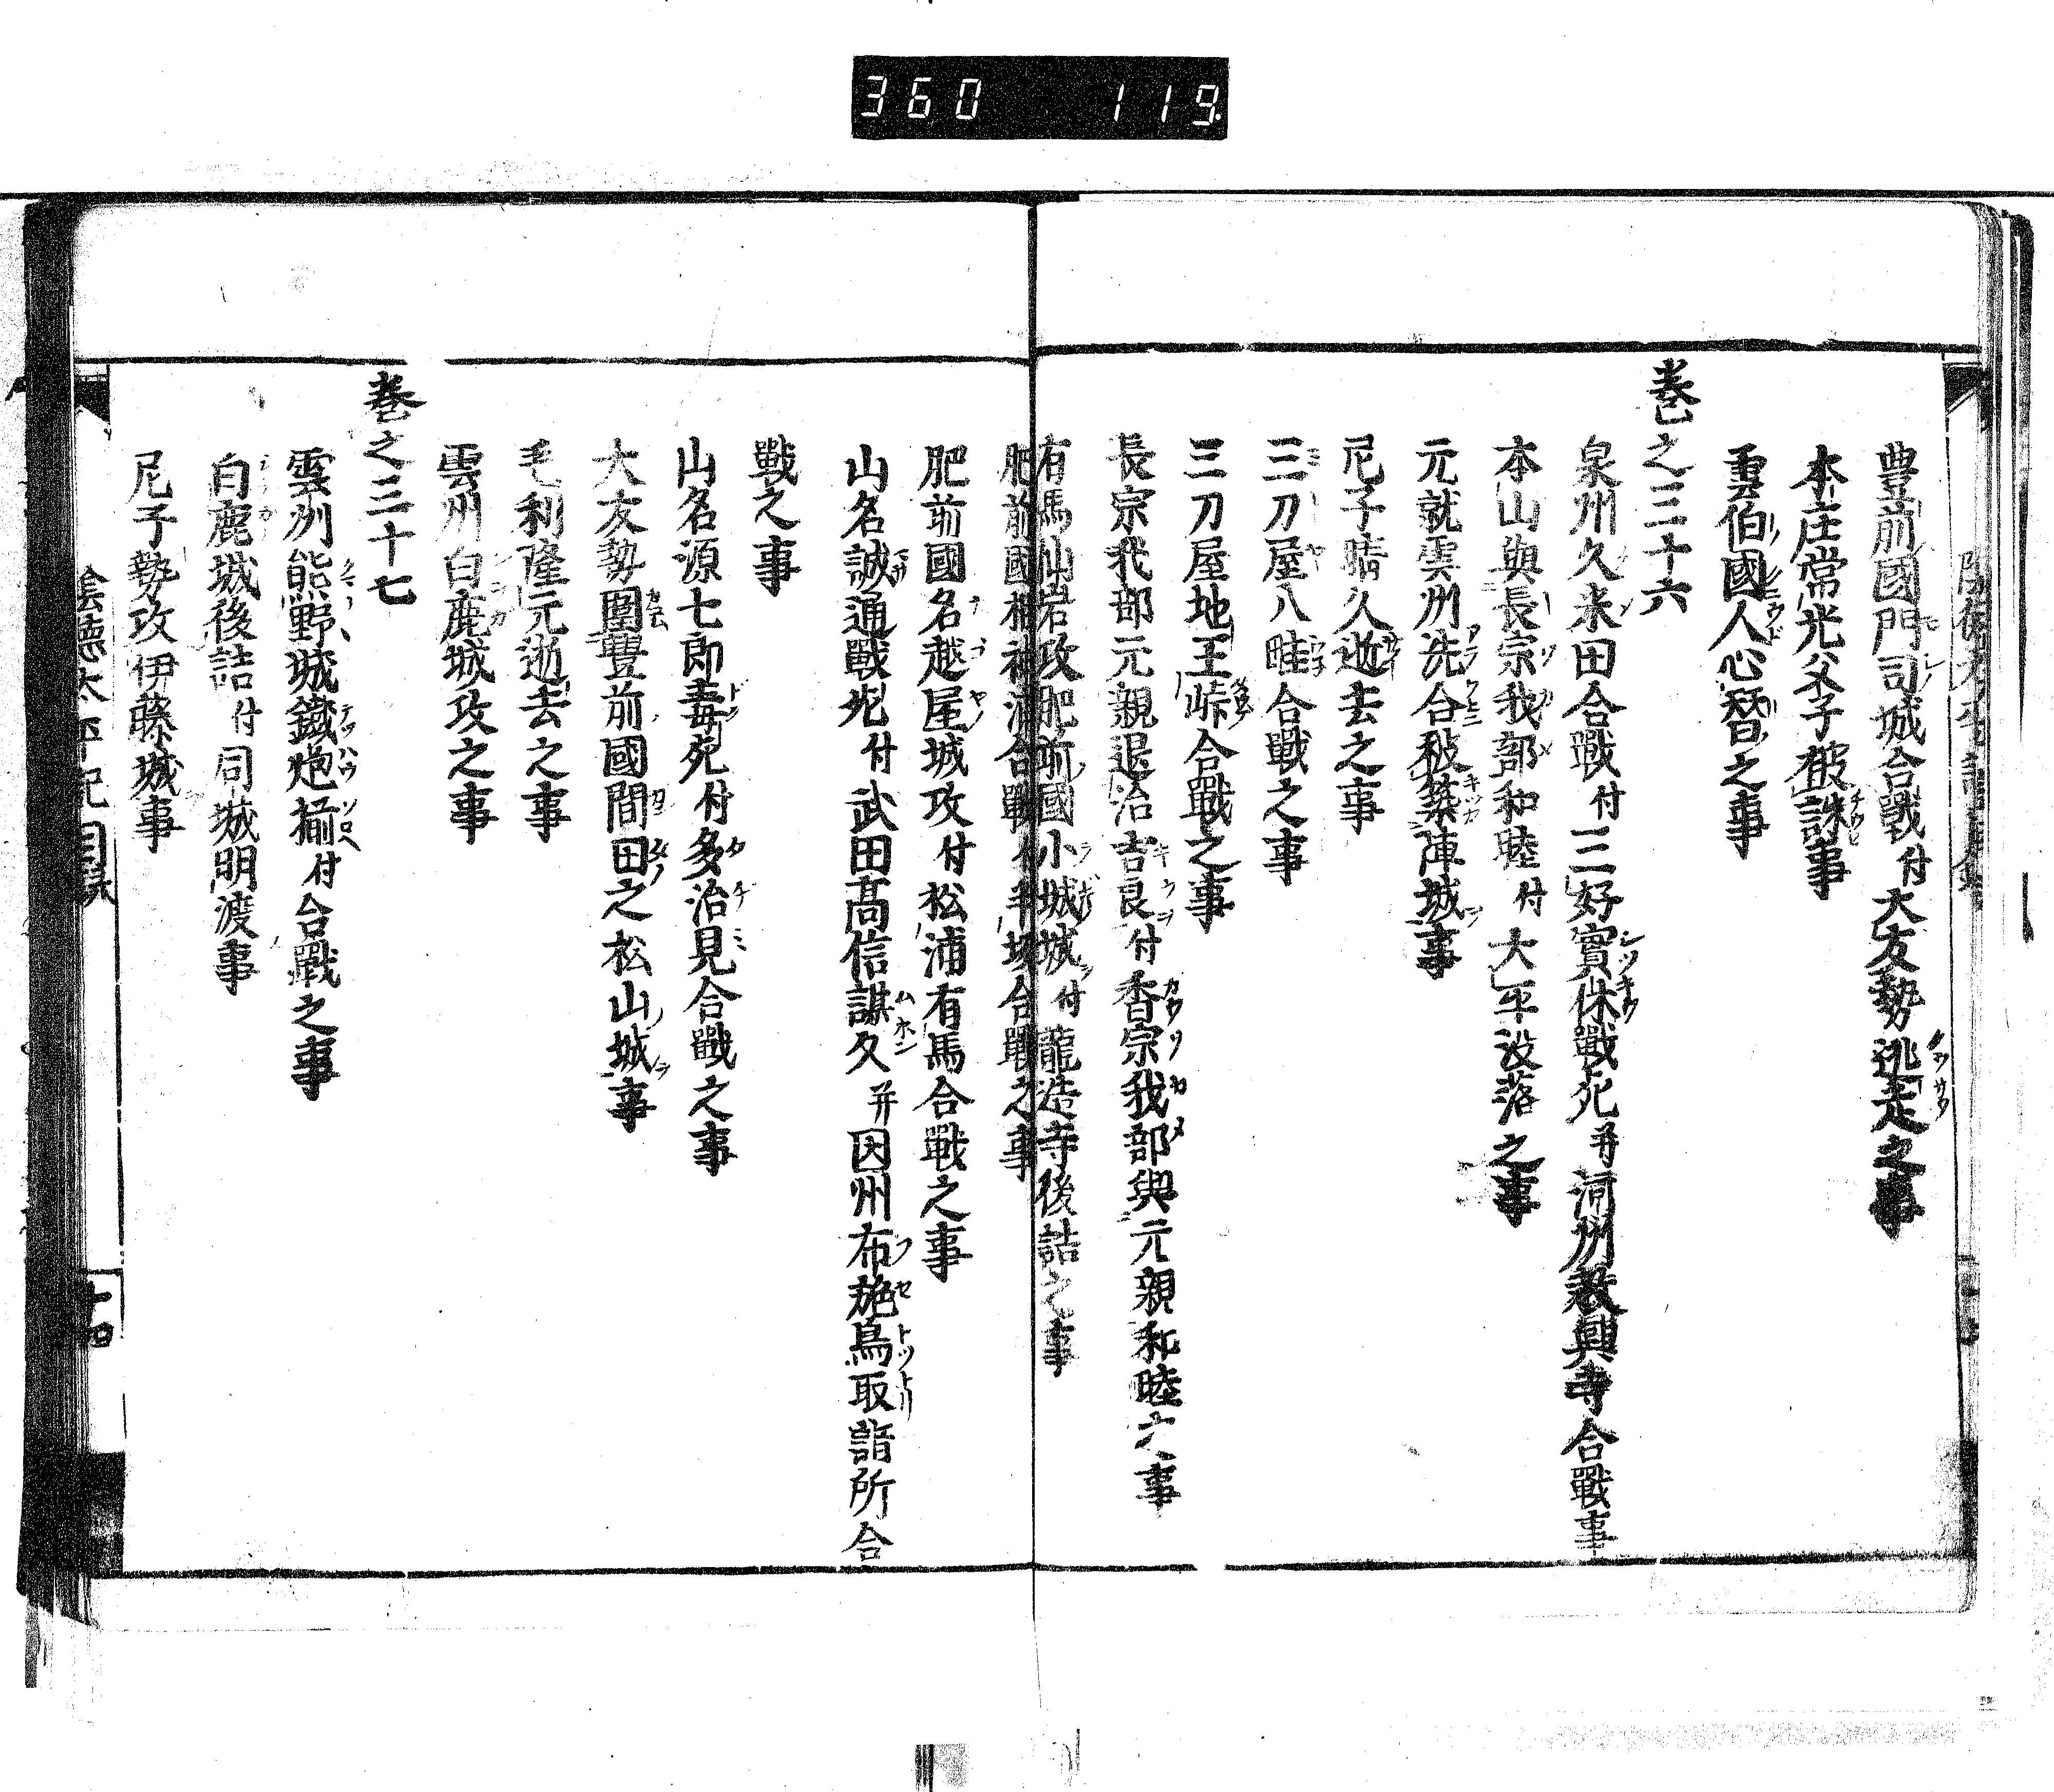 360 119
豊前國門司城合戰付大友勢逃走之事
本庄常光父子被誅事
雲伯國人心替之事
巻之三十六
泉州久米田合戰付三好實休戰死并河州教興寺合戰事
本山與長宗我部和睦付大平没落之事
元就雲州洗合被築陣城事
尼子晴久逝去之事
三刀屋八畦合戰之事
三刀屋地王峠合戰之事
長宗我部元親退治吉良付香宗我部與元親和睦之事
有馬仙岩攻肥前國小城城付龍造寺後詰之事
肥前國柏浦合戰付半坂合戰之事
肥前國名越屋城攻付松浦有馬合戰之事
山名誠通戰死付武田髙信謀久并因州布施鳥取諸所合
戰之事
山名源七郎毒死付多治見合戰之事
大友勢圍豐前國間田之松山城事
毛利隆元逝去之事
雲州白鹿城攻之事
巻之三十七
雲州熊野城鐵炮揃付合戰之事
白鹿城後詰付同城明渡事
尼子勢攻伊藤城事
陰德太平記目録 十四